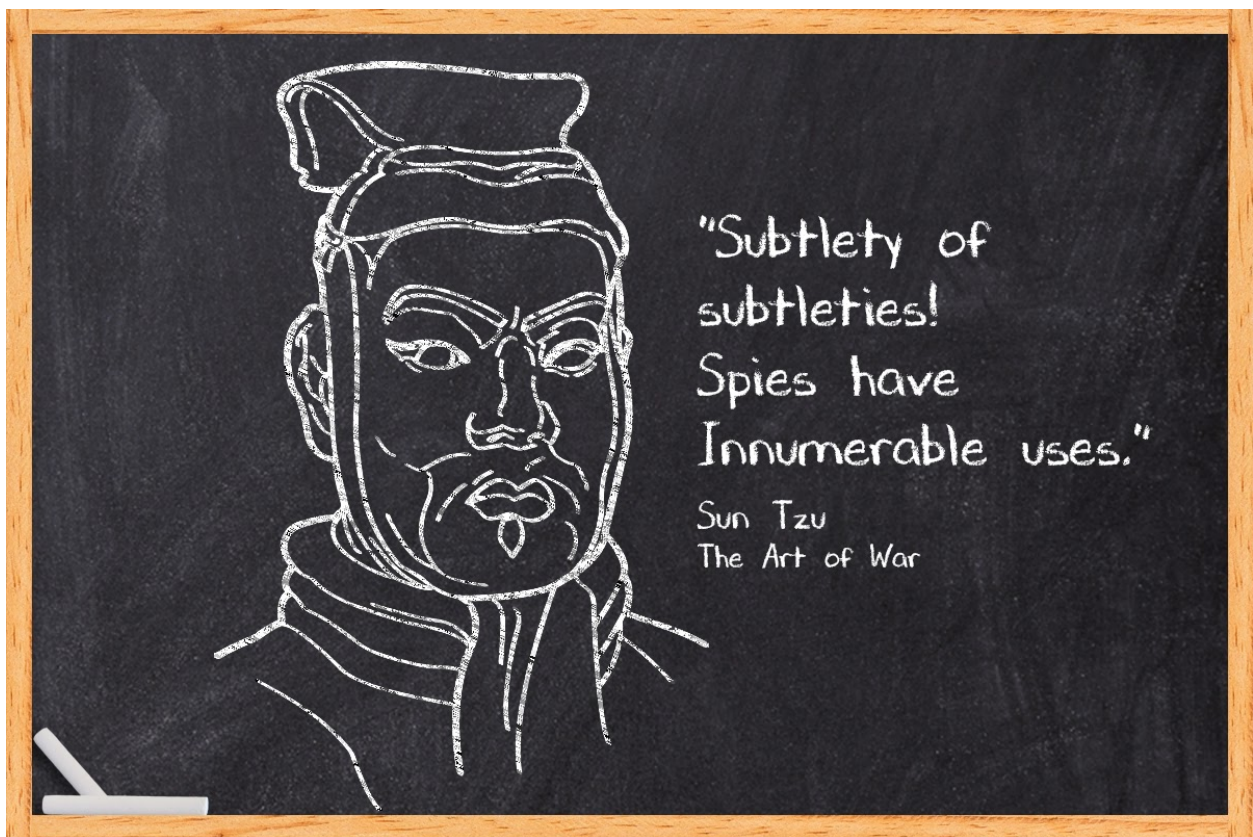 "Subtlety of
subtleties!
Spies have
Innumerable uses."
Sun Tzu
The Art of War